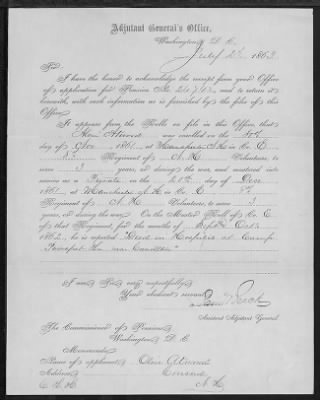 Adjutant General's Office,
Washington, D. C.
July 2d, 1863
Sir:
I have the honor to acknowledge the receipt from your Office
of application for Pension No. and to return it
herewith, with such information as is furnished by the files of this
Office.
It appears from the Rolls on file in this Office, that
Atwood was enrolled on the
day of 1861 at N.H. in Co. E
8th Regiment of N. H. Volunteers, to
serve 3 years, or during the war, and mustered into
service as a Private on the 20th day of Dec
1861, at Manchester N.H. in Co. E 8th
Regiment of N. H. Volunteers, to serve 3
years, or during the war. On the Muster Roll of Co. E
of that Regiment, for the months of Sept & Oct
1862, he is reported "Died in Hospital at Camp
Parapet La. near Carrollton"
I am, Sir, very respectfully,
Your obedient servant,
Assistant Adjutant General
The Commissioner of Pensions
Washington, D. C.
Memoranda
Name of applicant, Olive Atwood
Address, Concord
N.H.